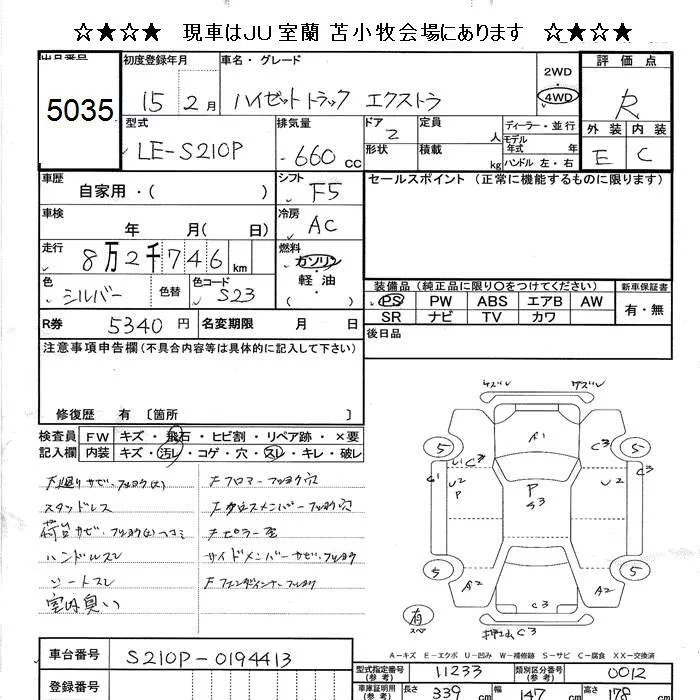 ☆★☆★ 現車はJU室蘭 苫小牧会場にあります ☆★☆★
出品番号
5035
初度登録年月
15 2月
車名・グレード
ハイゼットトラック エクストラ
2WD
・
4WD
評価点
R
外装 内装
E C
型式
LE-S210P
排気量
660 cc
ドア 2
定員 人
形状
積載 kg
ディーラー・並行
モデル年式 年
ハンドル 左・右
車歴
自家用・( )
シフト
F5
セールスポイント (正常に機能するものに限ります)
車検
年 月( 日)
冷房
AC
走行
8万2千746 km
燃料
ガソリン
・
軽油
( )
色
シルバー
色替
色コード
S23
装備品 (純正品に限り○をつけてください)
新車保証書
PS PW ABS エアB AW
SR ナビ TV カワ
有・無
R券 5340 円
名変期限 月 日
後日品
注意事項申告欄 (不具合内容等は具体的に記入して下さい)
修復歴 有 〔箇所 〕
検査員記入欄
FW キズ・飛石・ヒビ割・リペア跡・×要
内装 キズ・汚レ・コゲ・穴・スレ・キレ・破レ
下廻りサビ、フショク(大)
スタッドレス
荷台サビ・フショク(大)ヘコミ
ハンドルスレ
シートスレ
室内臭い
Fフロアーフショク穴
Fクロスメンバーフショク穴
Fピラー歪
サイドメンバーサビ、フショク
Fフェンダインナーフショク
ケズレ ケズレ
A1
5 5
U1 C3
C3
G1
U2
P
P
S3
U2
5 5
A2
A2
C3
有
スペ
押エムC3
A-キズ E-エクボ U-凹み W-補修跡 S-サビ C-腐食 XX-交換済
車台番号
S210P-0194413
登録番号
型式指定番号
(参考)
11233
類別区分番号
(参考)
0012
車庫証明用
(参考)
長さ 339 cm
幅 147 cm
高さ 178 cm